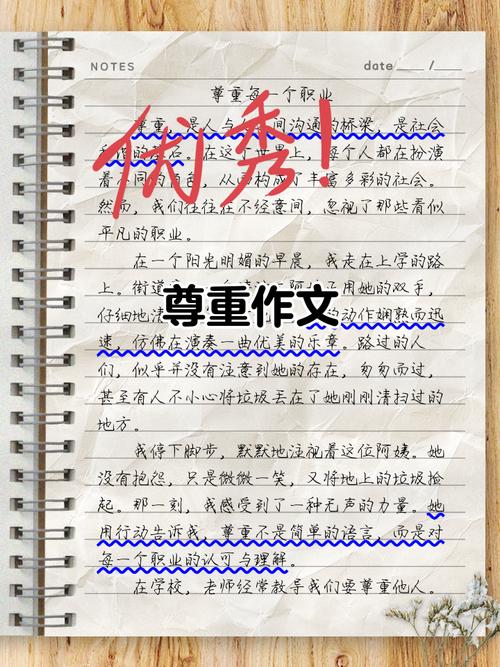 NOTES
date /
尊重每一个职业
优秀!
尊重,是人与 间沟通的桥梁,是社会
的 石。在这 世界上, 个人都在扮演
着 同的 色,从 构成了丰富多彩的社会。
然而,我们往往在不经意间,忽视了那些看似
平凡的职业。
在一个阳光明媚的早晨,我走在上学的路
上。街道 用她的双手,
仔细地清 动作娴熟而迅
尊重作文
速,仿佛在演奏一曲优美的乐章。路过的人
们,似乎并没有注意到她的存在,匆匆而过,
甚至有人不小心将垃圾丢在了她刚刚清扫过的
地方。
我停下脚步,默默地注视着这位阿姨。她
没有抱怨,只是微微一笑,又将地上的垃圾捡
起。那一刻,我感受到了一种无声的力量。她
用行动告诉我,尊重不是简单的语言,而是对
每一个职业的认可与理解。
在学校,老师经常教导我们要尊重他人。